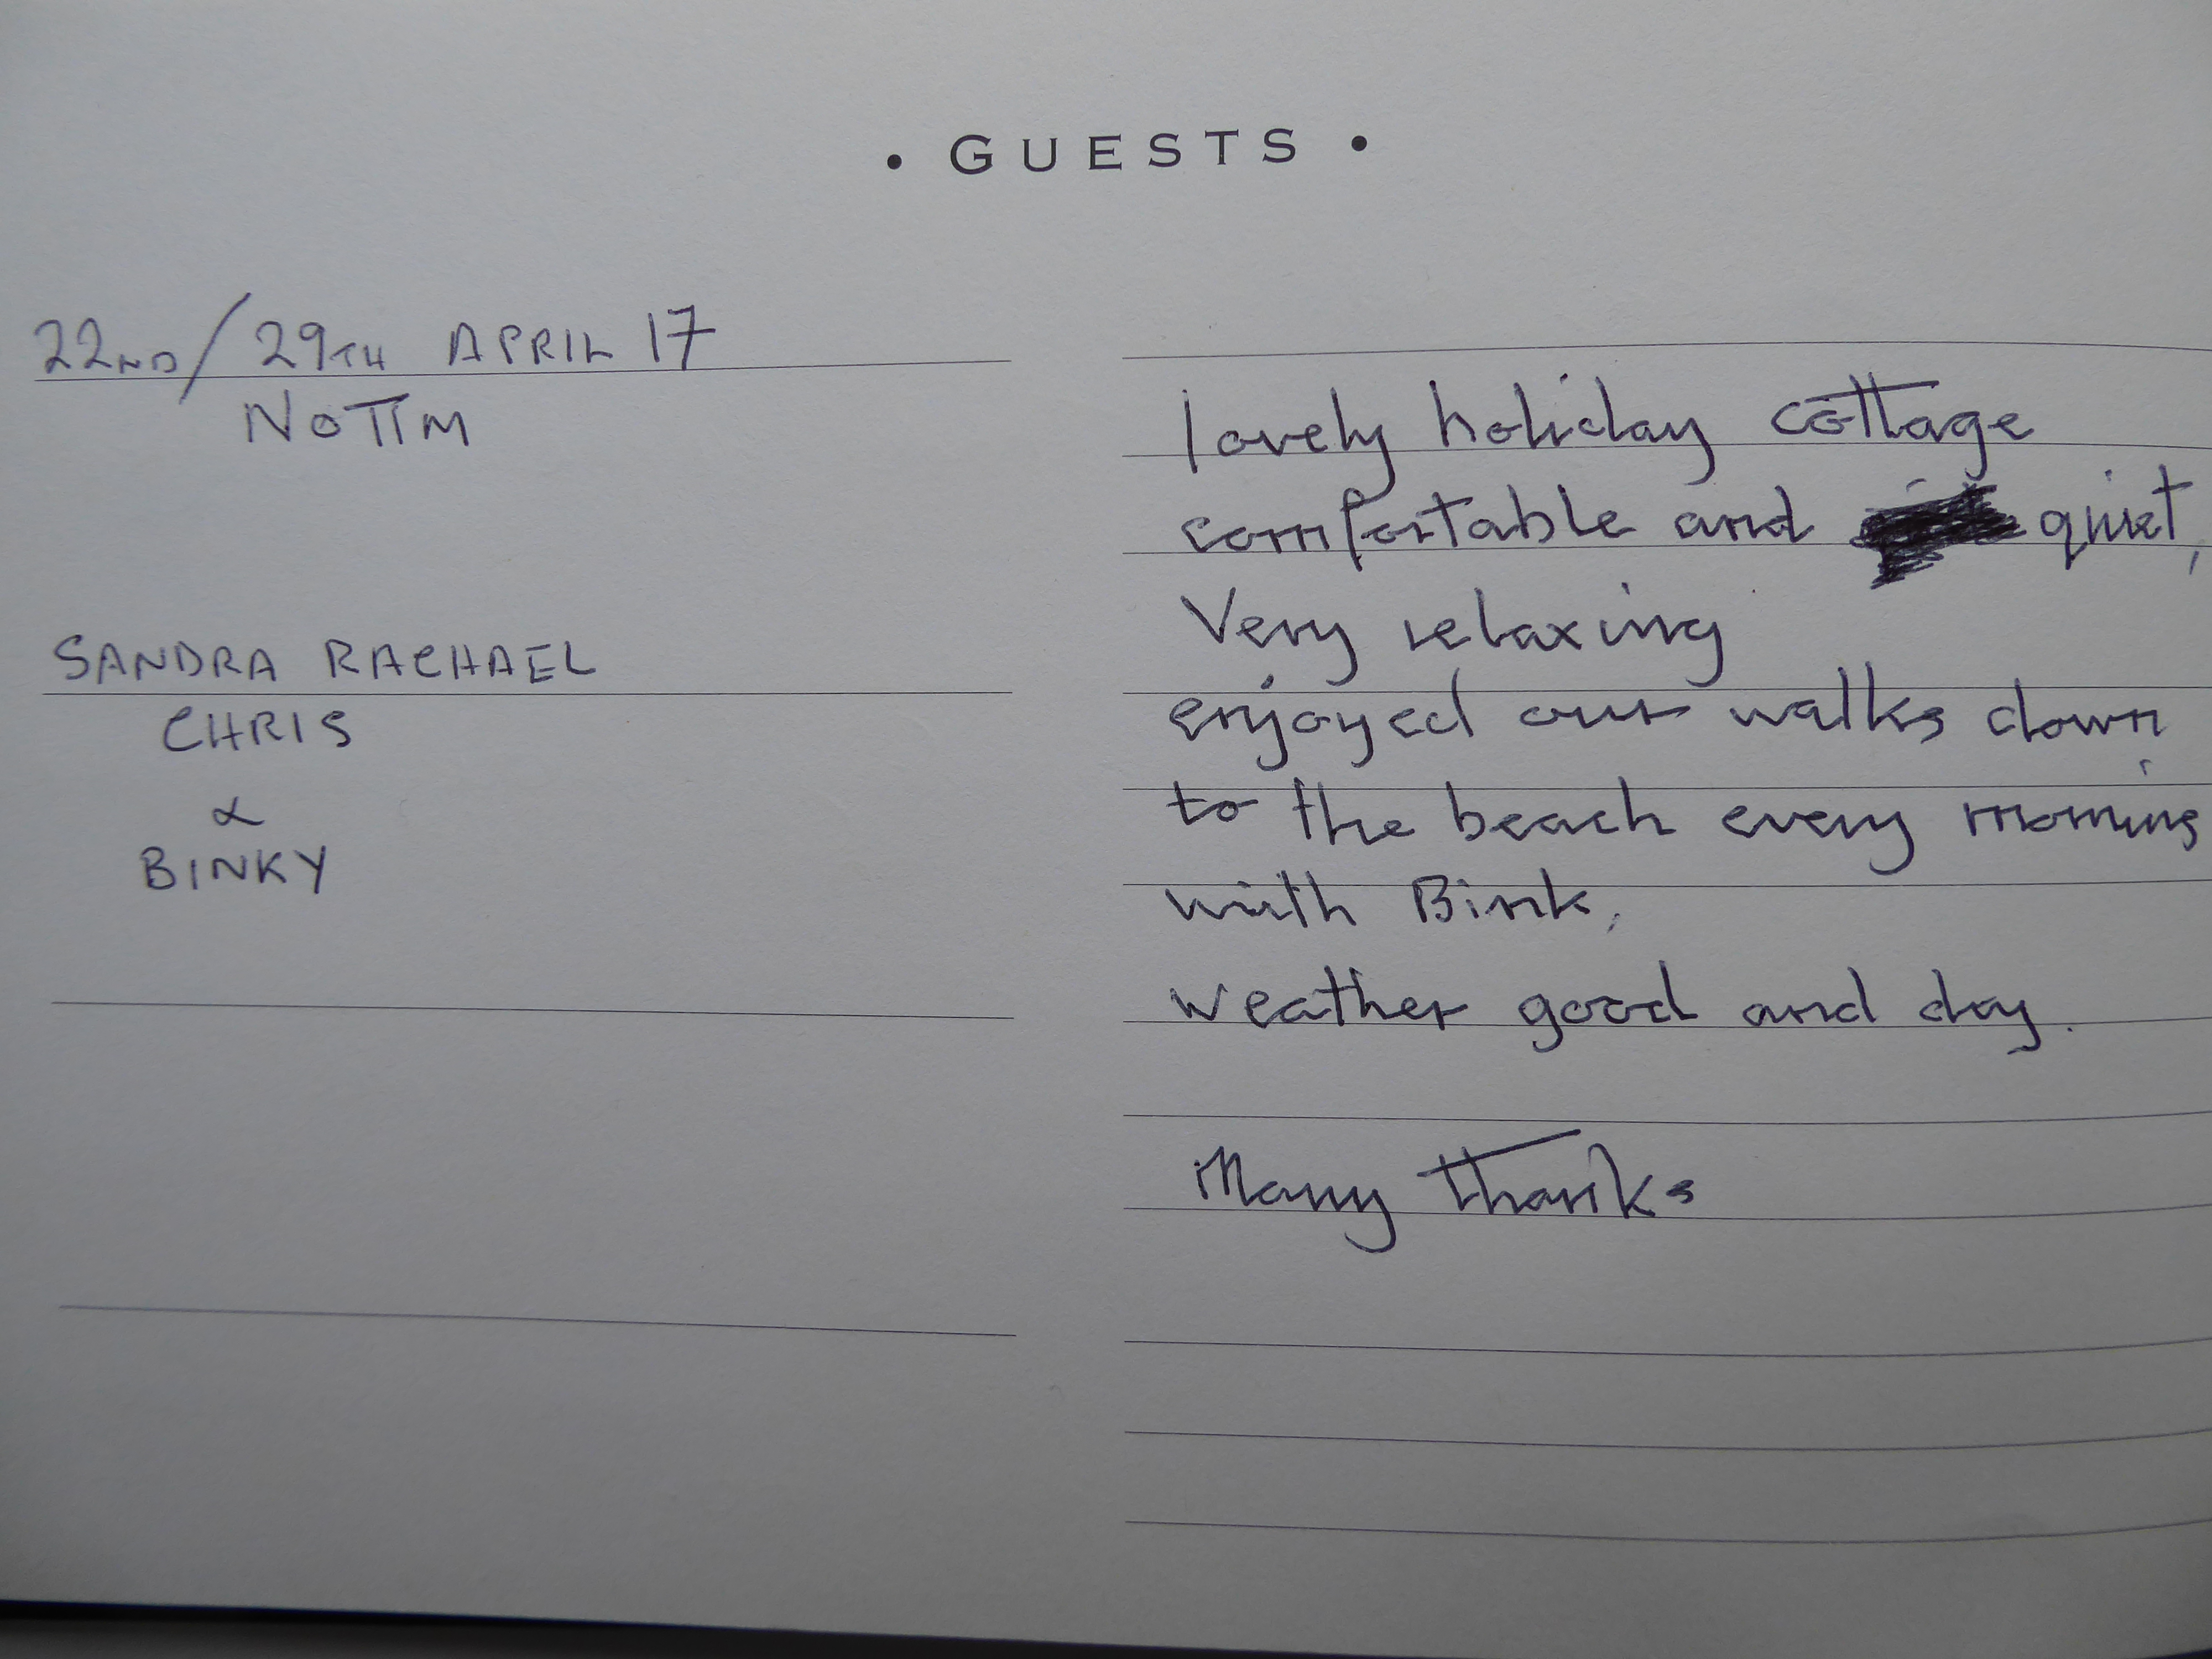 • GUESTS •
22ND/29TH APRIL 17
NOTTM
SANDRA RACHAEL
CHRIS
&
BINKY
lovely holiday cottage
comfortable and quiet,
Very relaxing
enjoyed our walks down
to the beach every morning
with Bink,
weather good and dry.
Many thanks